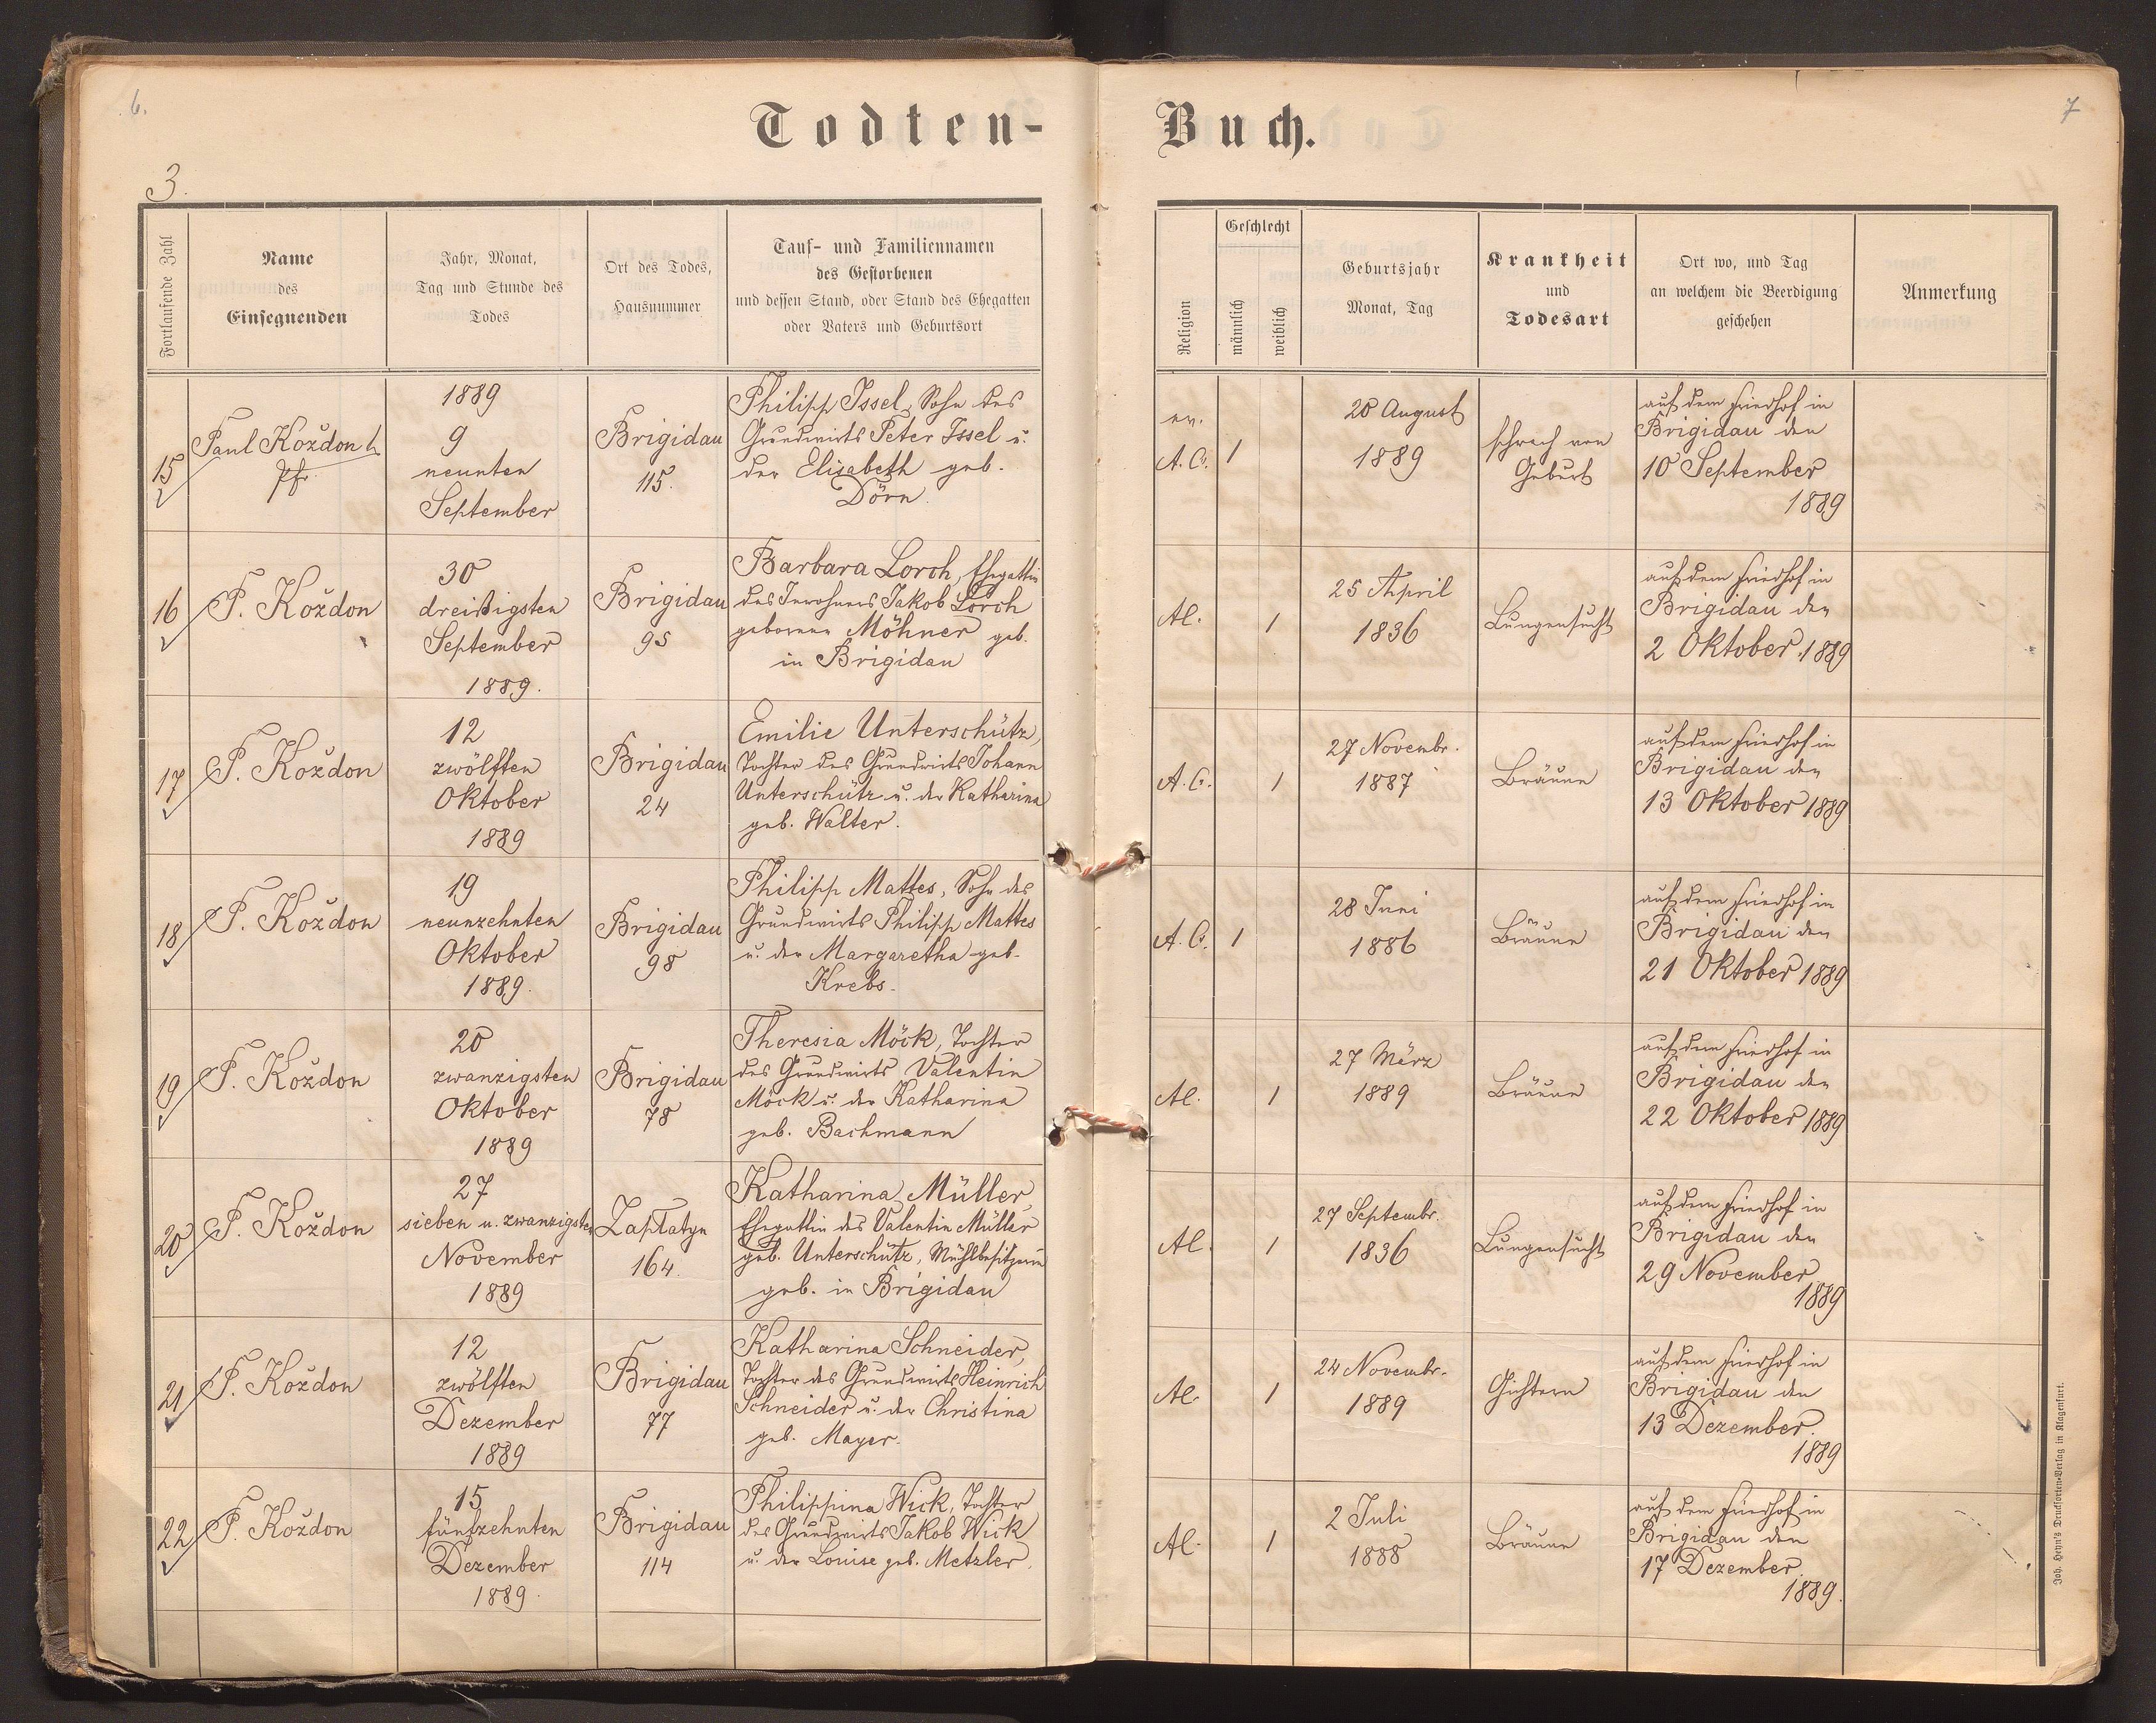 6.
Todten-
Buch.
7
3.
Fortlaufende Zahl
Name
des
Einsegnenden
Jahr, Monat,
Tag und Stunde des
Todes
Ort des Todes,
Hausnummer
Tauf- und Familiennamen
des Gestorbenen
und dessen Stand, oder Stand des Ehegatten
oder Vaters und Geburtsort
Religion
Geschlecht
männlich
weiblich
Geburtsjahr
Monat, Tag
Krankheit
und
Todesart
Ort wo, und Tag
an welchem die Beerdigung
geschehen
Anmerkung
15
Paul Koždon
Pfr.
1889
9
neunten
September
Brigidau
115.
Philipp Issel, Sohn des
Grundwirts Peter Issel u.
der Elisabeth geb.
Dörn.
ev.
A. C.
1
20 August
1889
schwach von
Geburt
auf dem Friedhof in
Brigidau den
10 September
1889
16
P. Koždon
30
dreißigsten
September
1889.
Brigidau
95
Barbara Lorch, Ehegattin
des Inwohners Jakob Lorch
geborene Möhner geb.
in Brigidau
Al.
1
25 April
1836
Lungensucht
auf dem Friedhof in
Brigidau den
2 Oktober 1889
17
P. Koždon
12
zwölften
Oktober
1889
Brigidau
24
Emilie Unterschütz,
Tochter des Grundwirts Johann
Unterschütz u. der Katharina
geb. Walter.
A. C.
1
27 Novembr.
1887
Bräune
auf dem Friedhof in
Brigidau den
13 Oktober 1889
18
P. Koždon
19
neunzehnten
Oktober
1889.
Brigidau
98
Philipp Mattes, Sohn des
Grundwirts Philipp Mattes
u. der Margaretha geb.
Krebs.
A. C.
1
28 Juni
1886
Bräune
auf dem Friedhof in
Brigidau den
21 Oktober 1889
19
P. Koždon
20
zwanzigsten
Oktober
1889
Brigidau
78
Theresia Möck, Tochter
des Grundwirts Valentin
Möck u. der Katharina
geb. Bachmann
Al.
1
27 März
1889
Bräune
auf dem Friedhof in
Brigidau den
22 Oktober 1889
20
P. Koždon
27
sieben u. zwanzigsten
November
1889
Zaplatyn
164.
Katharina Müller,
Ehegattin des Valentin Müller
geb. Unterschütz, Mühlbesitzerin
geb. in Brigidau
Al.
1
27 Septembr.
1836
Lungensucht
auf dem Friedhof in
Brigidau den
29 November
1889
21
P. Koždon
12
zwölften
Dezember
1889
Brigidau
77
Katharina Schneider,
Tochter des Grundwirts Heinrich
Schneider u. der Christina
geb. Mayer.
Al.
1
24 Novembr.
1889
Gichtern
auf dem Friedhof in
Brigidau den
13 Dezember
1889
22
P. Koždon
15
fünfzehnten
Dezember
1889.
Brigidau
114
Philippina Wick, Tochter
des Grundwirts Jakob Wick
u. der Louise geb. Metzler.
Al.
1
2 Juli
1888
Bräune
auf dem Friedhof in
Brigidau den
17 Dezember
1889.
Joh. Heyn's Drucksorten-Verlag in Klagenfurt.